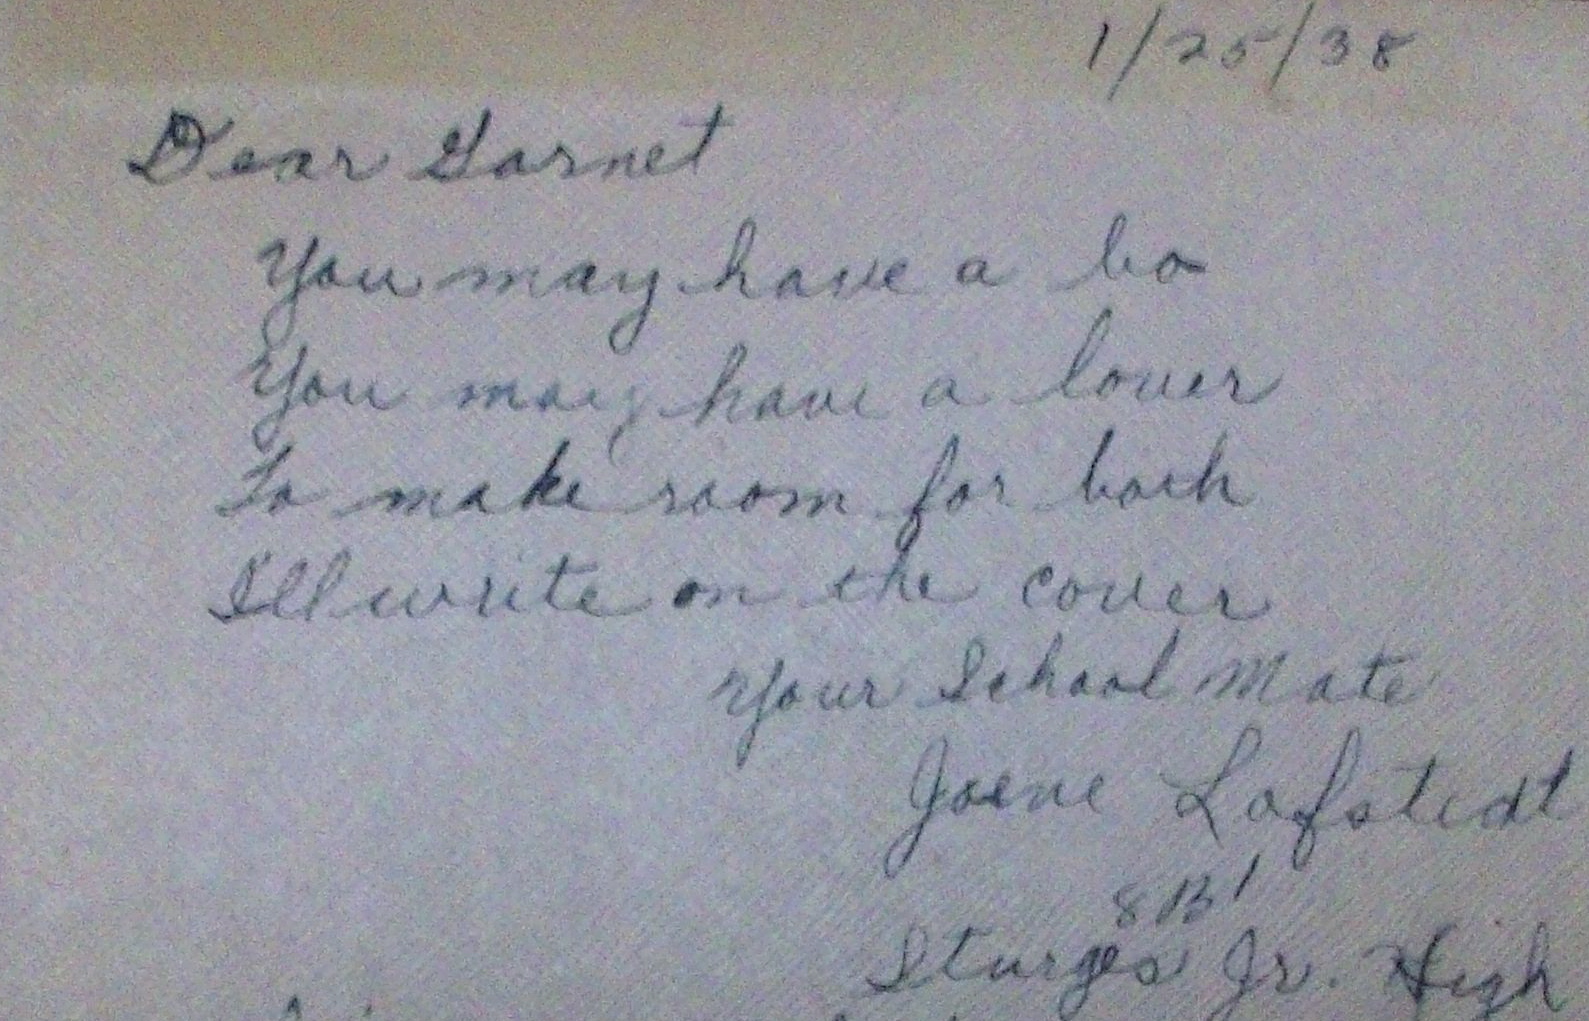 1/25/38
Dear Garnet
You may have a bo
You may have a lover
To make room for both
Ill write on the cover
Your School Mate
Joene Lofstedt
8B1
Sturges Jr. High